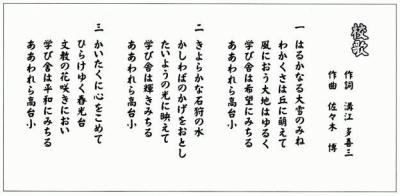 校歌
作詞 溝江 多喜三
作曲 佐々木 博
一 はるかなる大雪のみね
わかくさは丘に萌えて
風におう大地はゆるく
学び舎は希望にみちる
ああわれら高台小
二 きよらかな石狩の水
かしわばのかげをおとし
たいようの光に映えて
学び舎は輝きみちる
ああわれら高台小
三 かいたくに心をこめて
ひらけゆく春光台
文教の花咲きにおい
学び舎は平和にみちる
ああわれら高台小